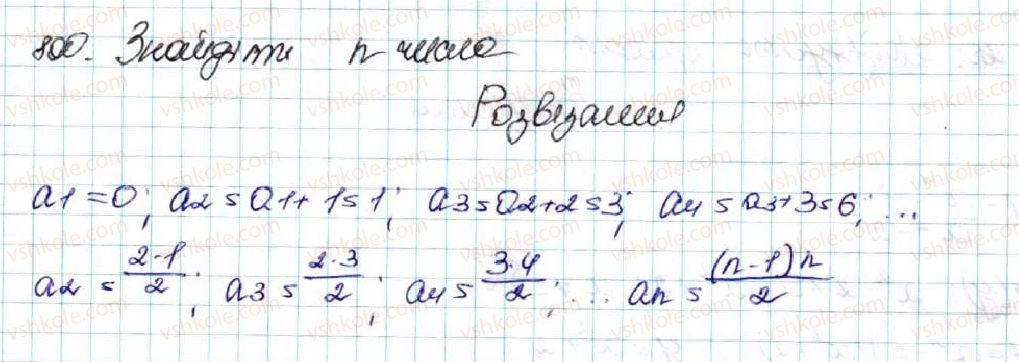 800. Знайдіть n число
Розвязання
a1 = 0; a2 = a1 + 1 = 1; a3 = a2 + 2 = 3; a4 = a3 + 3 = 6; ...
a2 = \frac{2·1}{2}; a3 = \frac{2·3}{2}; a4 = \frac{3·4}{2}; ... an = \frac{(n-1)n}{2}
vshkole.com